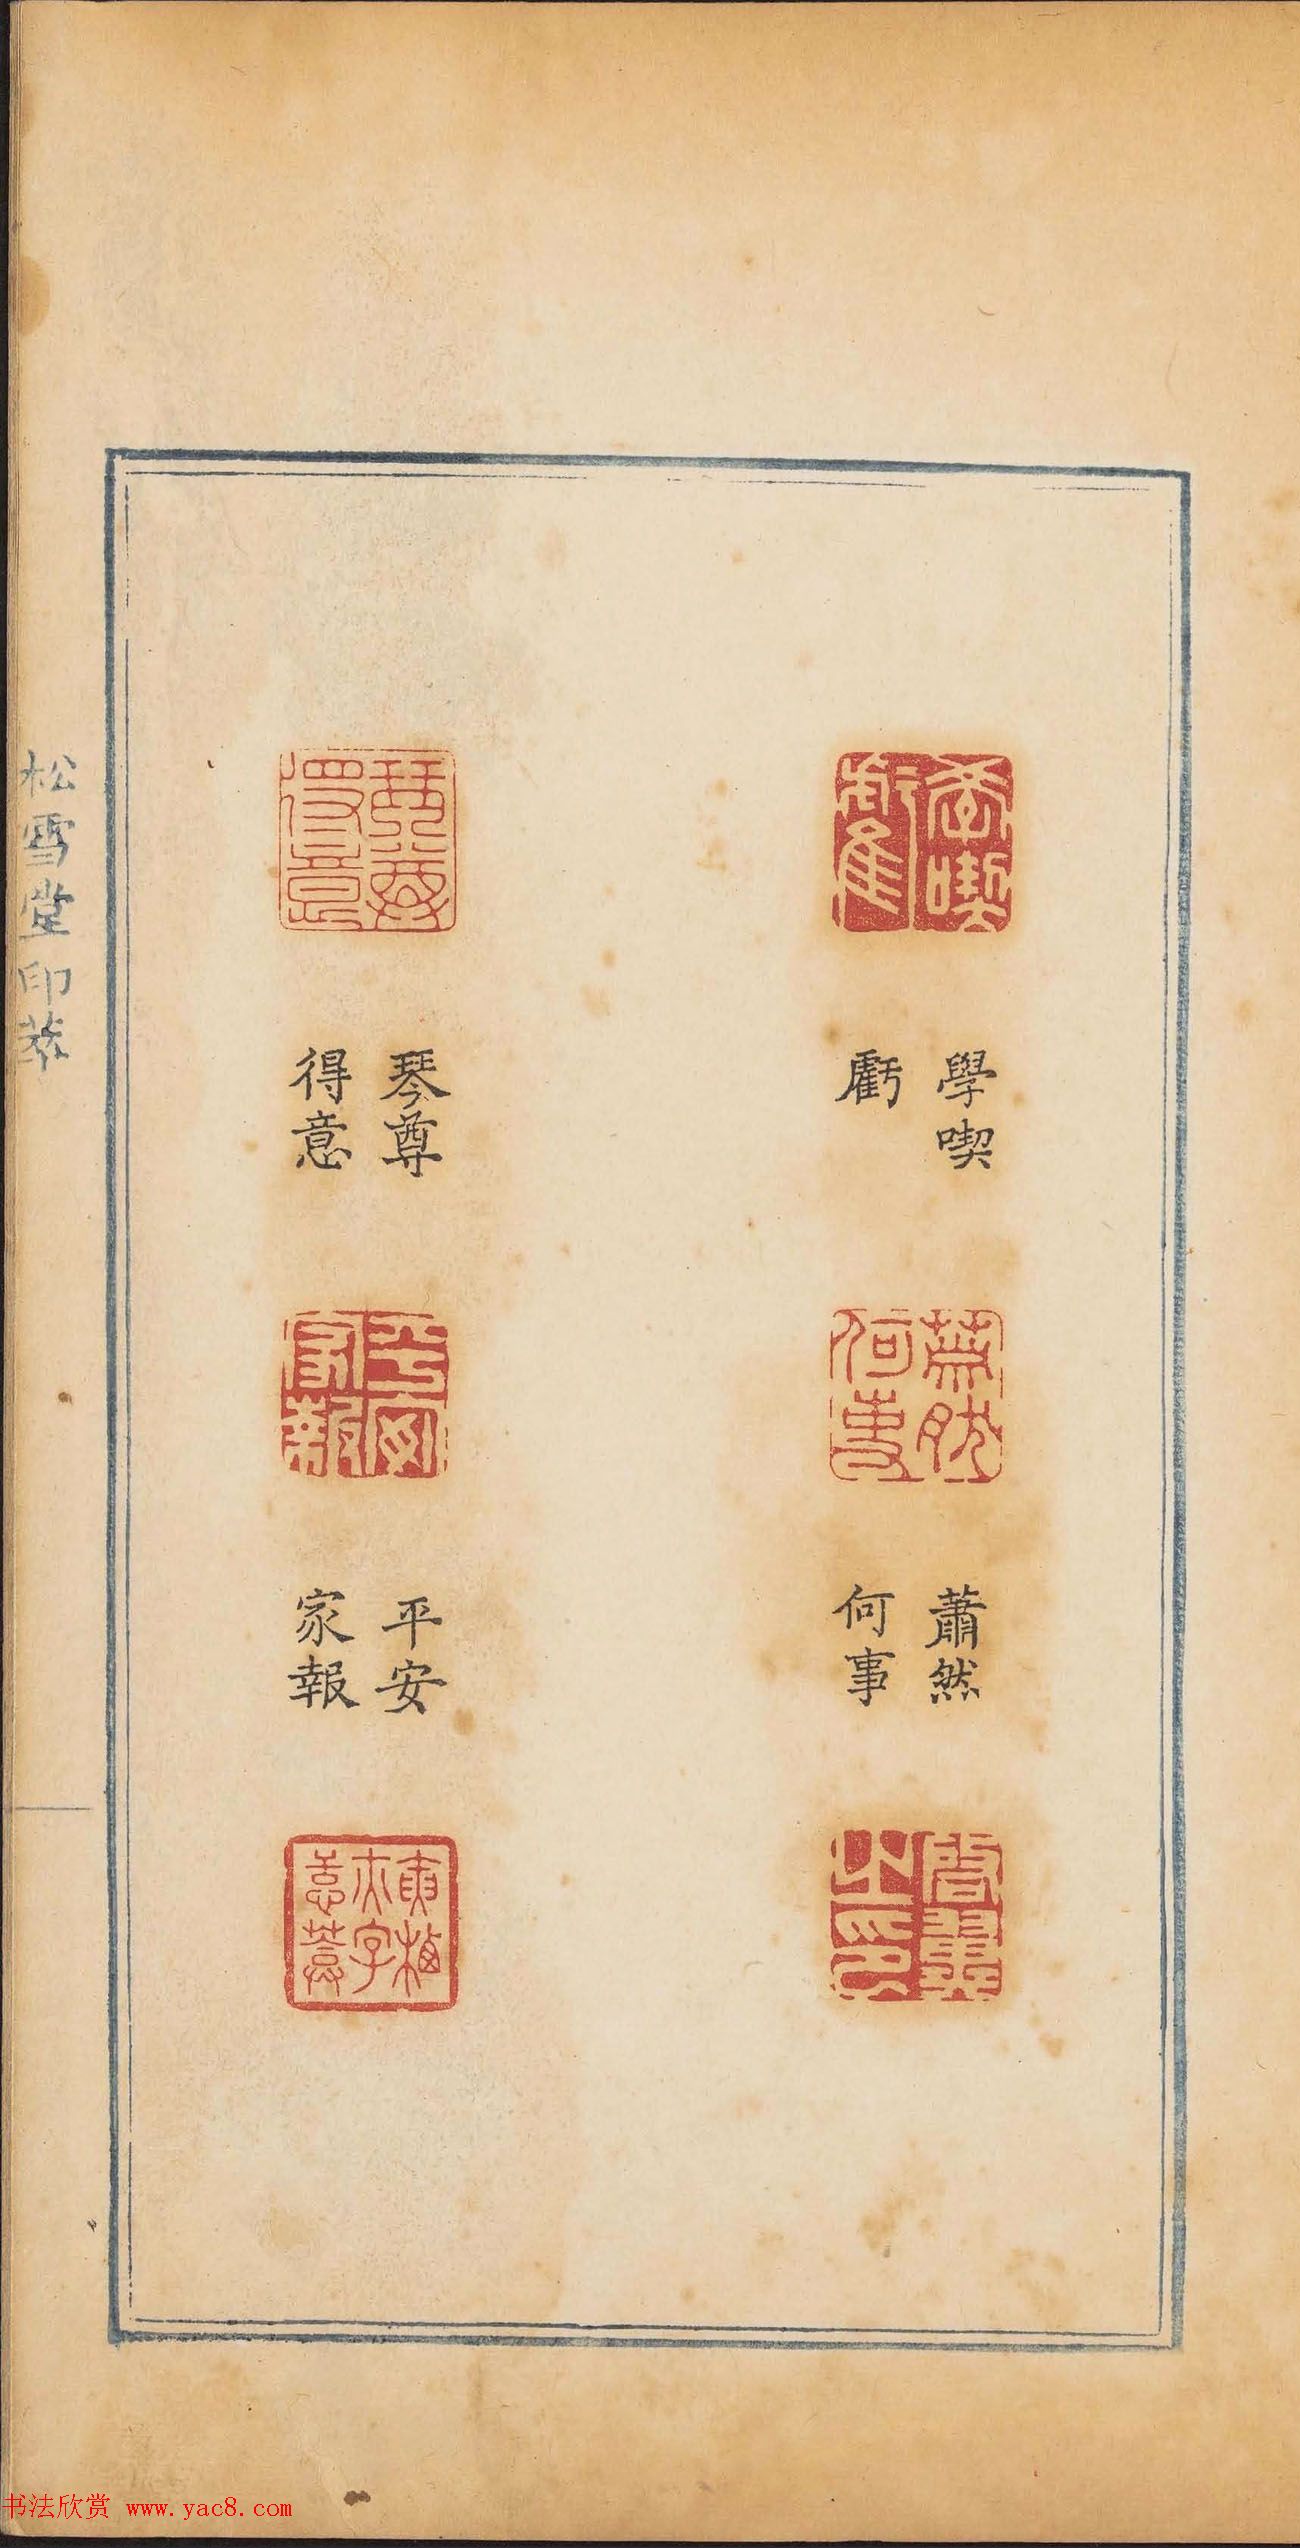 學喫
虧
蕭然
何事
琴尊
得意
平安
家報
松雪堂印萃
书法欣赏 www.yac8.com